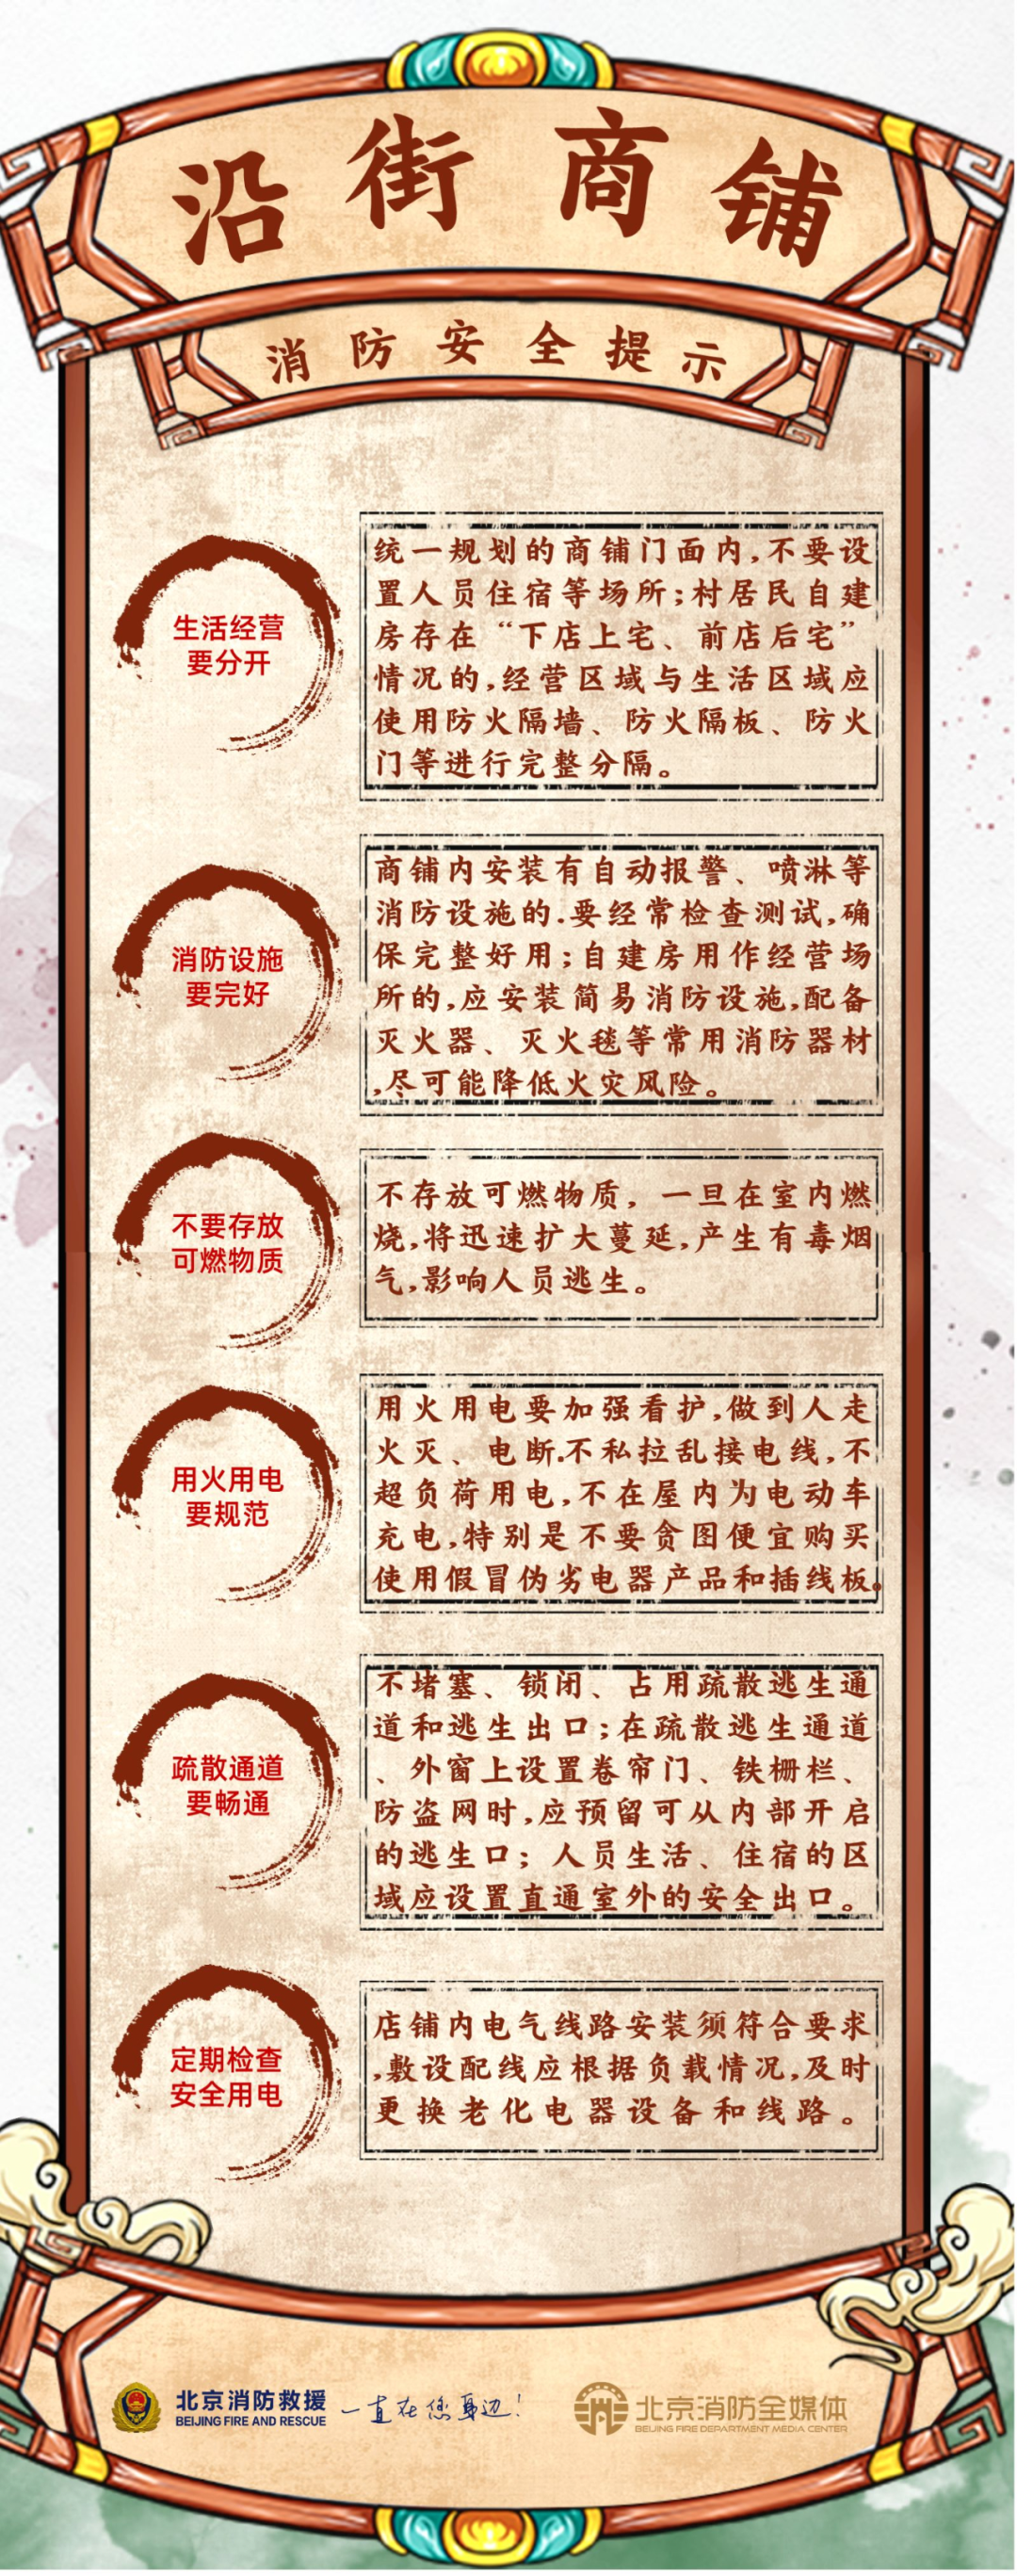 沿街商铺
消防安全提示
生活经营
要分开
统一规划的商铺门面内,不要设
置人员住宿等场所;村居民自建
房存在“下店上宅、前店后宅”
情况的,经营区域与生活区域应
使用防火隔墙、防火隔板、防火
门等进行完整分隔。
消防设施
要完好
商铺内安装有自动报警、喷淋等
消防设施的.要经常检查测试,确
保完整好用;自建房用作经营场
所的,应安装简易消防设施,配备
灭火器、灭火毯等常用消防器材
,尽可能降低火灾风险。
不要存放
可燃物质
不存放可燃物质，一旦在室内燃
烧,将迅速扩大蔓延,产生有毒烟
气,影响人员逃生。
用火用电
要规范
用火用电要加强看护,做到人走
火灭、电断.不私拉乱接电线,不
超负荷用电,不在屋内为电动车
充电,特别是不要贪图便宜购买
使用假冒伪劣电器产品和插线板。
疏散通道
要畅通
不堵塞、锁闭、占用疏散逃生通
道和逃生出口;在疏散逃生通道
、外窗上设置卷帘门、铁栅栏、
防盗网时,应预留可从内部开启
的逃生口；人员生活、住宿的区
域应设置直通室外的安全出口。
定期检查
安全用电
店铺内电气线路安装须符合要求
,敷设配线应根据负载情况,及时
更换老化电器设备和线路。
北京消防救援
BEIJING FIRE AND RESCUE
一直在您身边!
北京消防全媒体
BEIJING FIRE DEPARTMENT MEDIA CENTER